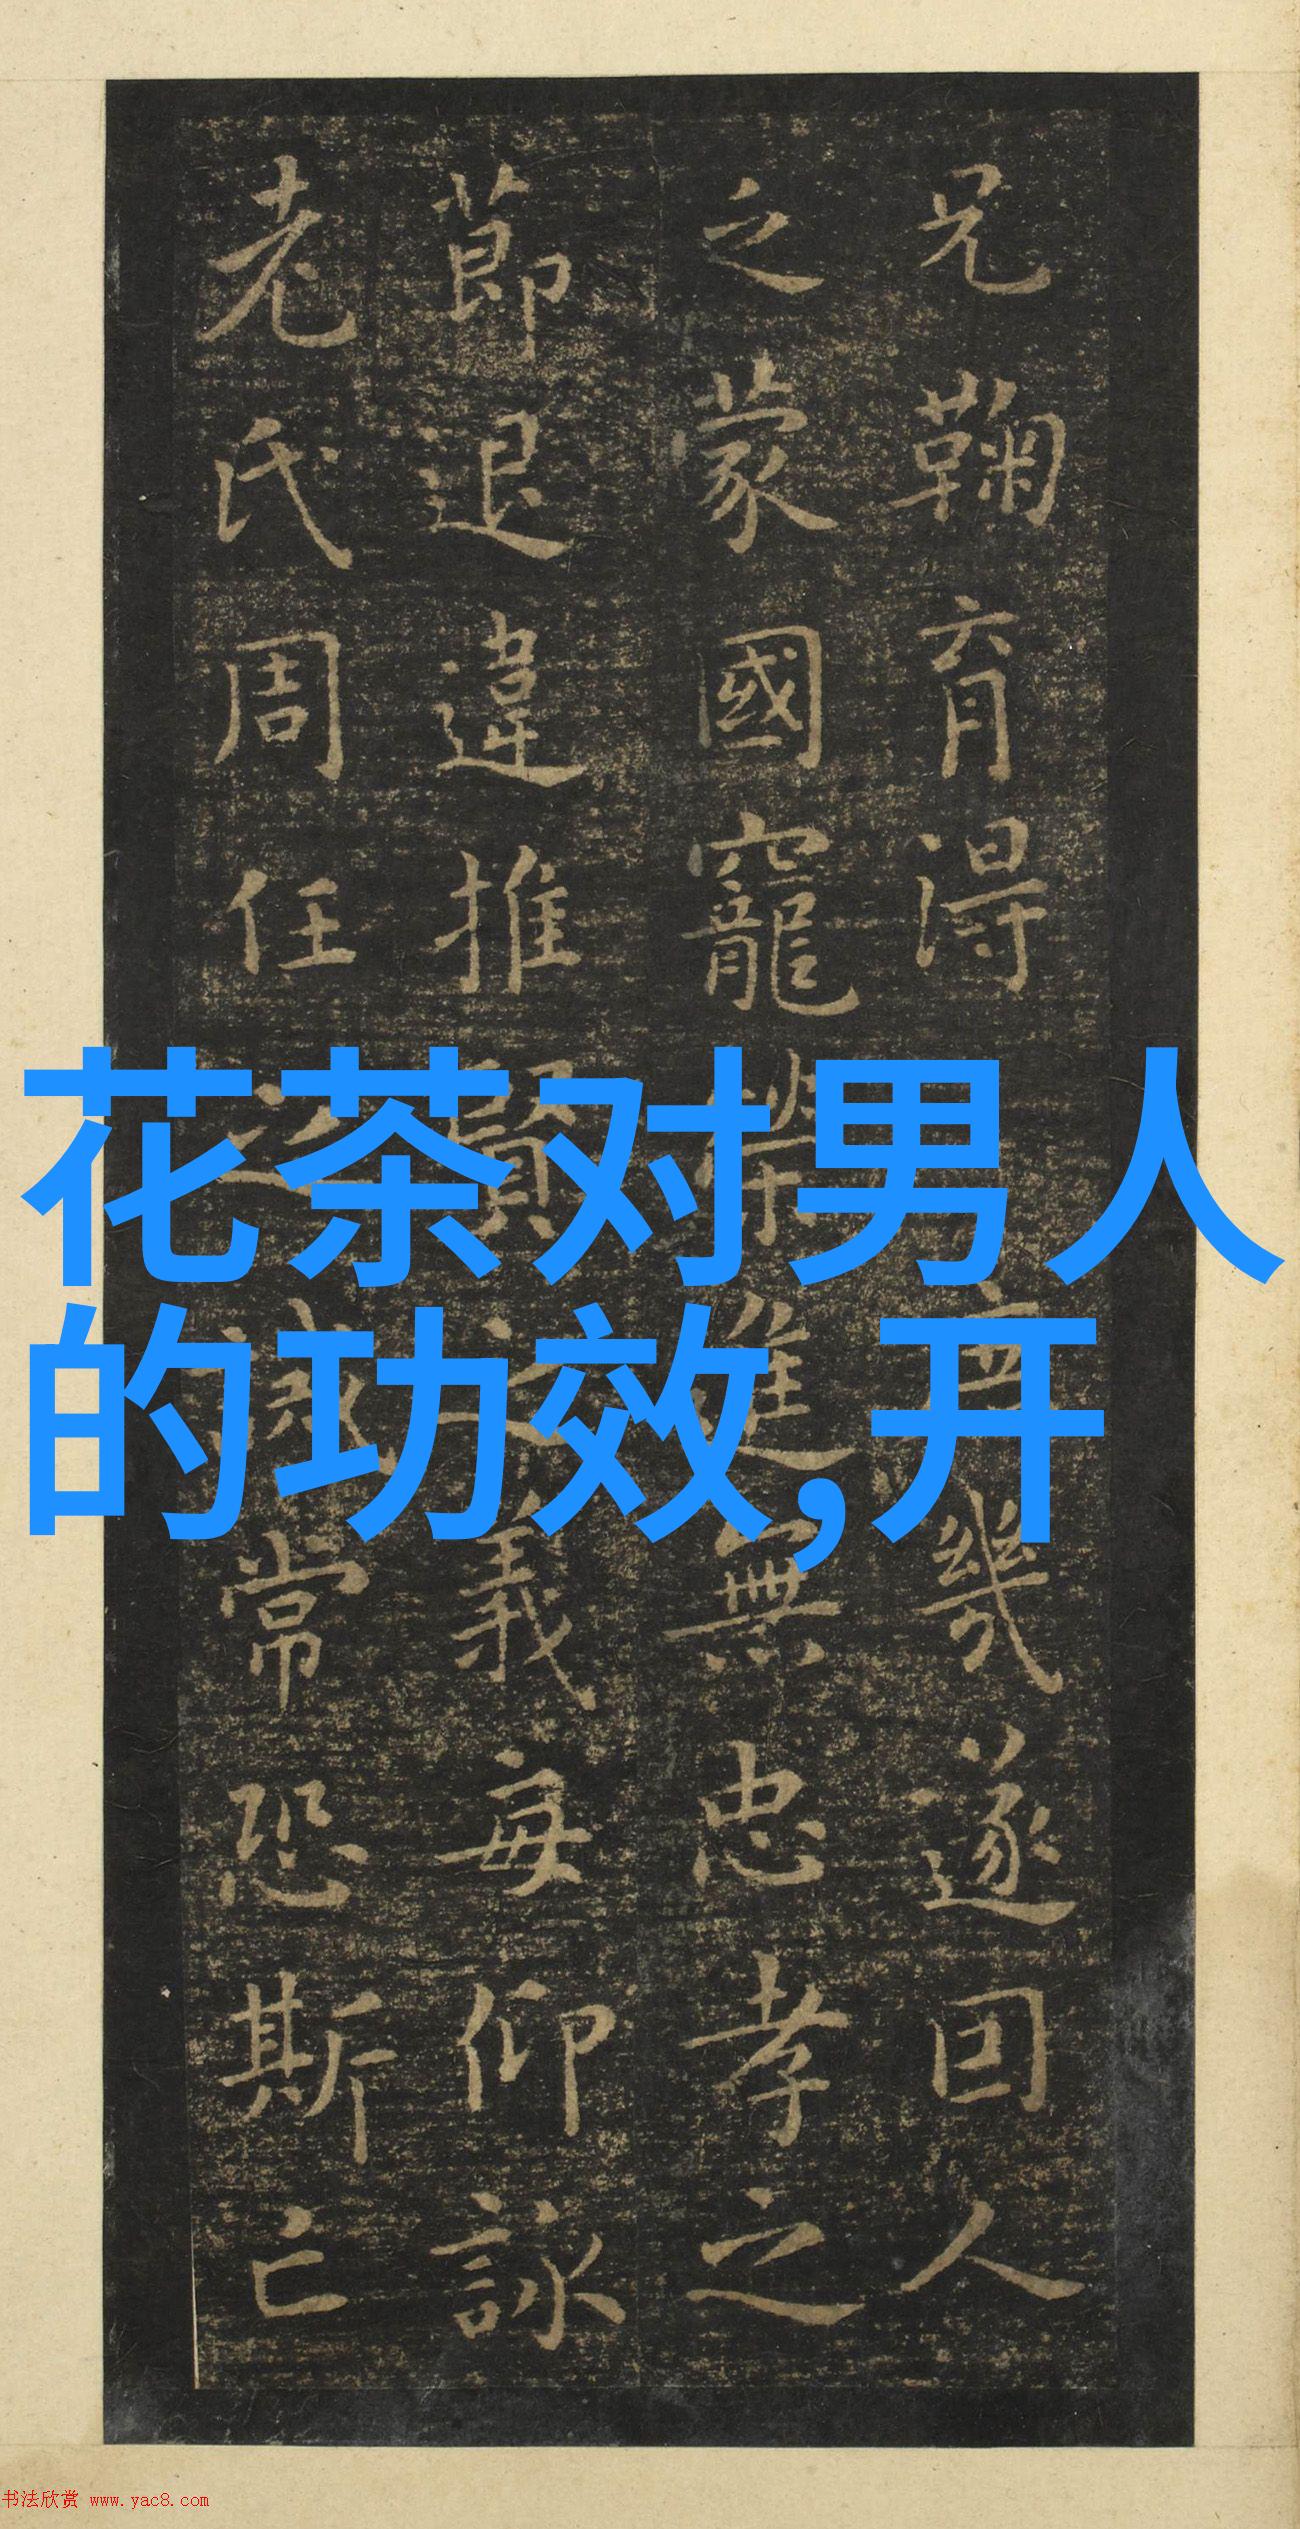 兄鞠育得庶幾遂因人
之蒙國寵榮進無忠孝之
節退違推賢之義每仰詠
老氏周任之誡常恐斯亡
花茶对男人
的功效,开
书法欣赏 www.yac8.com